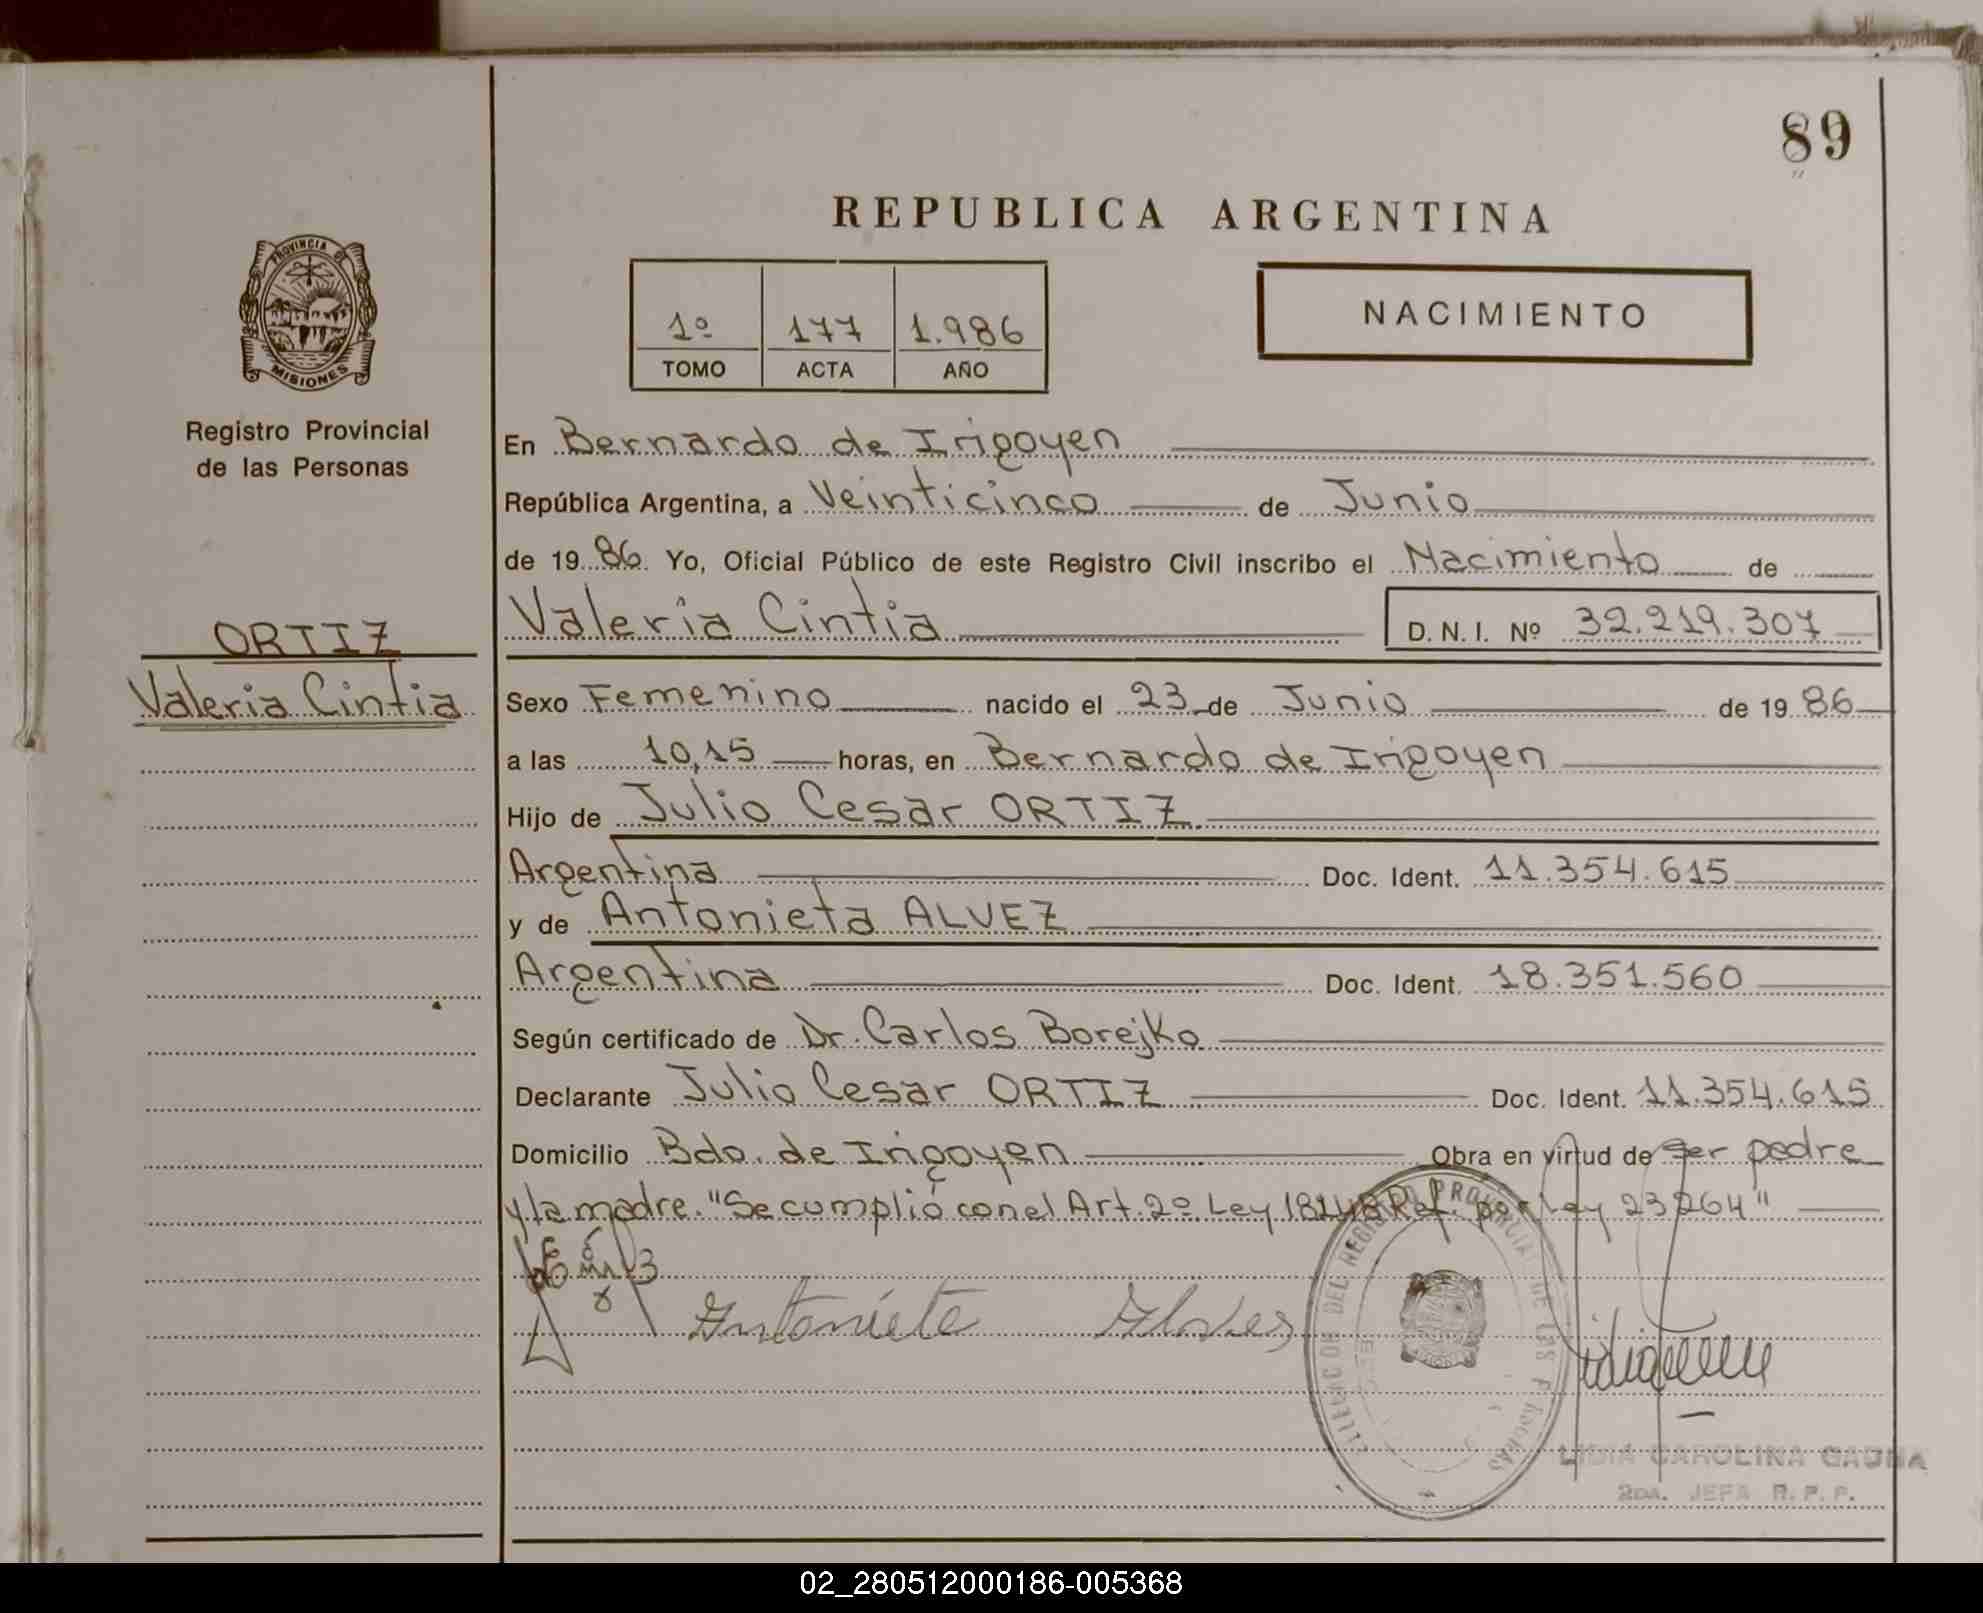 89
REPUBLICA ARGENTINA
PROVINCIA DE
MISIONES
1º 177 1.986
TOMO ACTA AÑO
NACIMIENTO
Registro Provincial
de las Personas
ORTIZ
Valeria Cintia
En Bernardo de Irigoyen
República Argentina, a Veinticinco de Junio
de 1986. Yo, Oficial Público de este Registro Civil inscribo el Nacimiento de
Valeria Cintia D. N. I. Nº 32.219.307
Sexo Femenino nacido el 23 de Junio de 1986
a las 10,15 horas, en Bernardo de Irigoyen
Hijo de Julio Cesar ORTIZ
Argentina Doc. Ident. 11.354.615
y de Antonieta ALVEZ
Argentina Doc. Ident. 18.351.560
Según certificado de Dr. Carlos Borejko
Declarante Julio Cesar ORTIZ Doc. Ident. 11.354.615
Domicilio Bdo. de Irigoyen Obra en virtud de ser padre
y la madre. "Se cumplió con el Art. 2º Ley 18248 Ref. por Ley 23264"
Antoniete Alves
DEL REGISTRO PROVINCIAL DE LAS PERSONAS
LIDIA CAROLINA GAUNA
2DA. JEFA R. P. P.
02_280512000186-005368